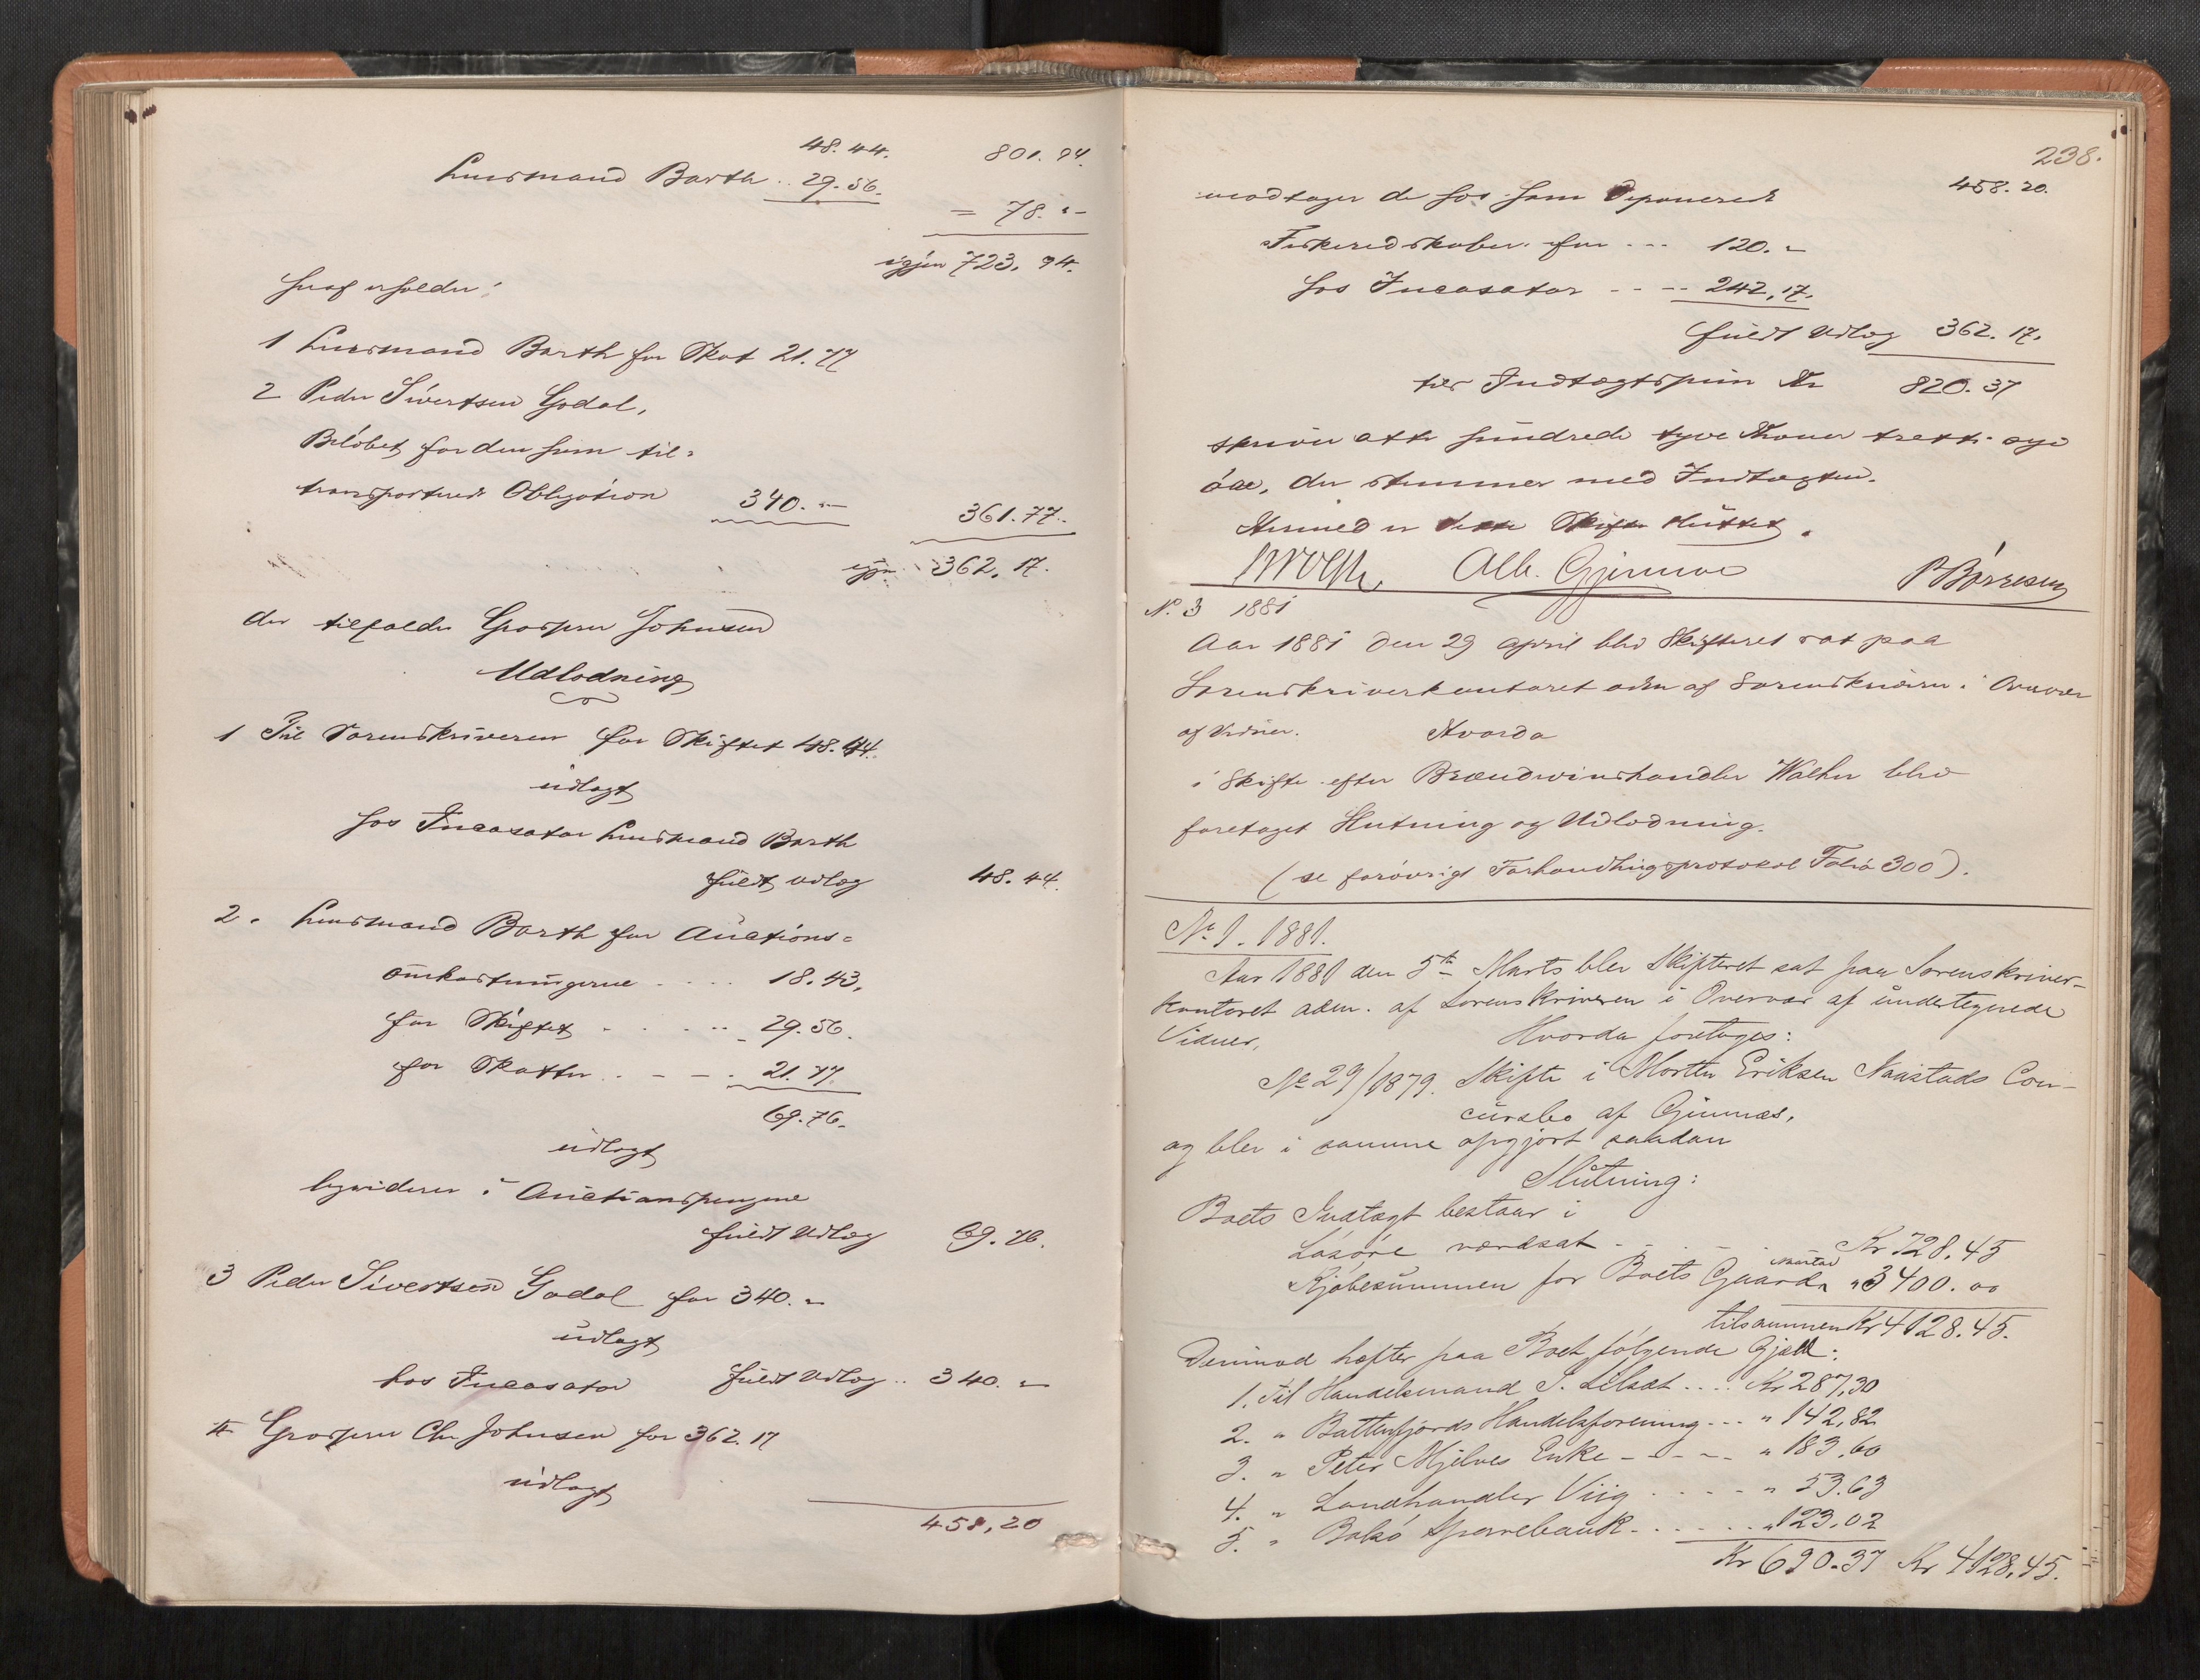 48.44. 801.94.
Lensmand Barth .. 29.56.
= 78. "-
igjen 723. 94.
heraf erholder:
1 Lensmand Barth for Skat 21.77
2 Peder Sivertsen Godal,
Beløbet for den ham til=
transporterede Obligation 340. "- 361.77.
igjen 362. 17.
der tilfalder Grosserer Johnsen
Udlodning
1 Til Sorenskriveren for Skiftet 48.44.
udlagt
hos Incasator Lensmand Barth
fuldt udlæg 48.44.
2. Lensmand Barth for Auctions=
omkostningerne .... 18.43.
for Skiftet . . . .. 29.56.
for Skatter . . - - . 21.77.
69.76.
udlagt
liqviderer i Auctionspengene
fuldt Udlæg 69.76.
3 Peder Sivertsen Godal for 340. "
udlagt
hos Incasator fuldt Udlæg .. 340. "
4 Grosserer Chr Johnsen for 362.17
udlagt
458,20
238.
458.20.
modtager de hos ham deponerede
Fiskeredskaber for --- 120. "
hos Incasator - - -- 242,17.
fuldt Udlæg 362.17.
der Indtægtspin Kr 820.37
skriver otte hundrede tyve Kroner tretti syv
øre, der stemmer med Indtægten.
Hermed er dette Skifte sluttet.
Alb. Gjennæs P Børresen
N. 3 1881
Aar 1881 den 29 april blev Skifteret sat paa
Sorenskriverkontoret adm af Sorenskriveren i Overvær
af Vidner. Hvorda
i Skifte efter Brændevinshandler Walher blev
foretaget Slutning og Udlodning.
(se forøvrigt Forhandlingsprotokol Folio 300).
No 1. 1881.
Aar 1881 den 5te Marts blev Skifteret sat paa Sorenskriver-
kontoret adm. af Sorenskriveren i Overvær af undertegnede
Vidner, Hvorda foretoges:
No 29/1879. Skifte i Morten Eriksen Naastads Con-
cursbo af Gimnæs,
og blev i samme opgjort saadan
Slutning:
Boets Indtægt bestaar i
Løsøre værdsat - . - - . Kr 728.45
Kjøbesummen for Boets Gaard Naastad " 3400.00
tilsammen Kr 4128.45.
Derimod hæfter paa Boet følgende Gjæld:
1. Til Handelsmand S. Lilsæt .... Kr 287,30
2. " Battenfjords Handelsforening --- " 142,82
3. " Peter Mjelves Enke - - - -- " 183.60
4. " Landhandler Viig . . . . - " 53.63
5. " Bolsø Sparebank - . . . . .. " 123,02
Kr 690.37 Kr 4128,45.